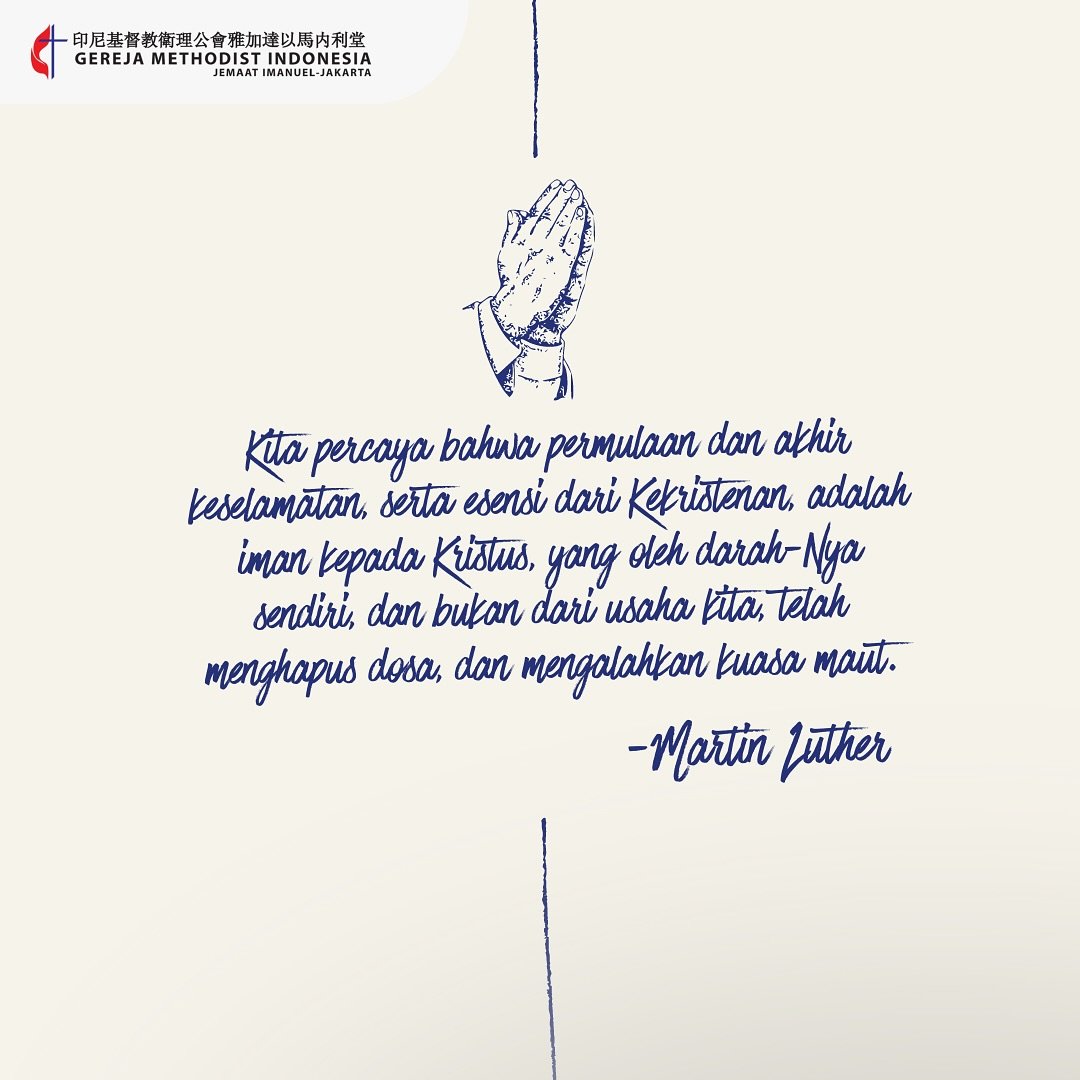 印尼基督教衛理公會雅加達以馬内利堂
GEREJA METHODIST INDONESIA
JEMAAT IMANUEL-JAKARTA
Kita percaya bahwa permulaan dan akhir
keselamatan, serta esensi dari Kekristenan, adalah
iman kepada Kristus, yang oleh darah-Nya
sendiri, dan bukan dari usaha kita, telah
menghapus dosa, dan mengalahkan kuasa maut.
-Martin Luther